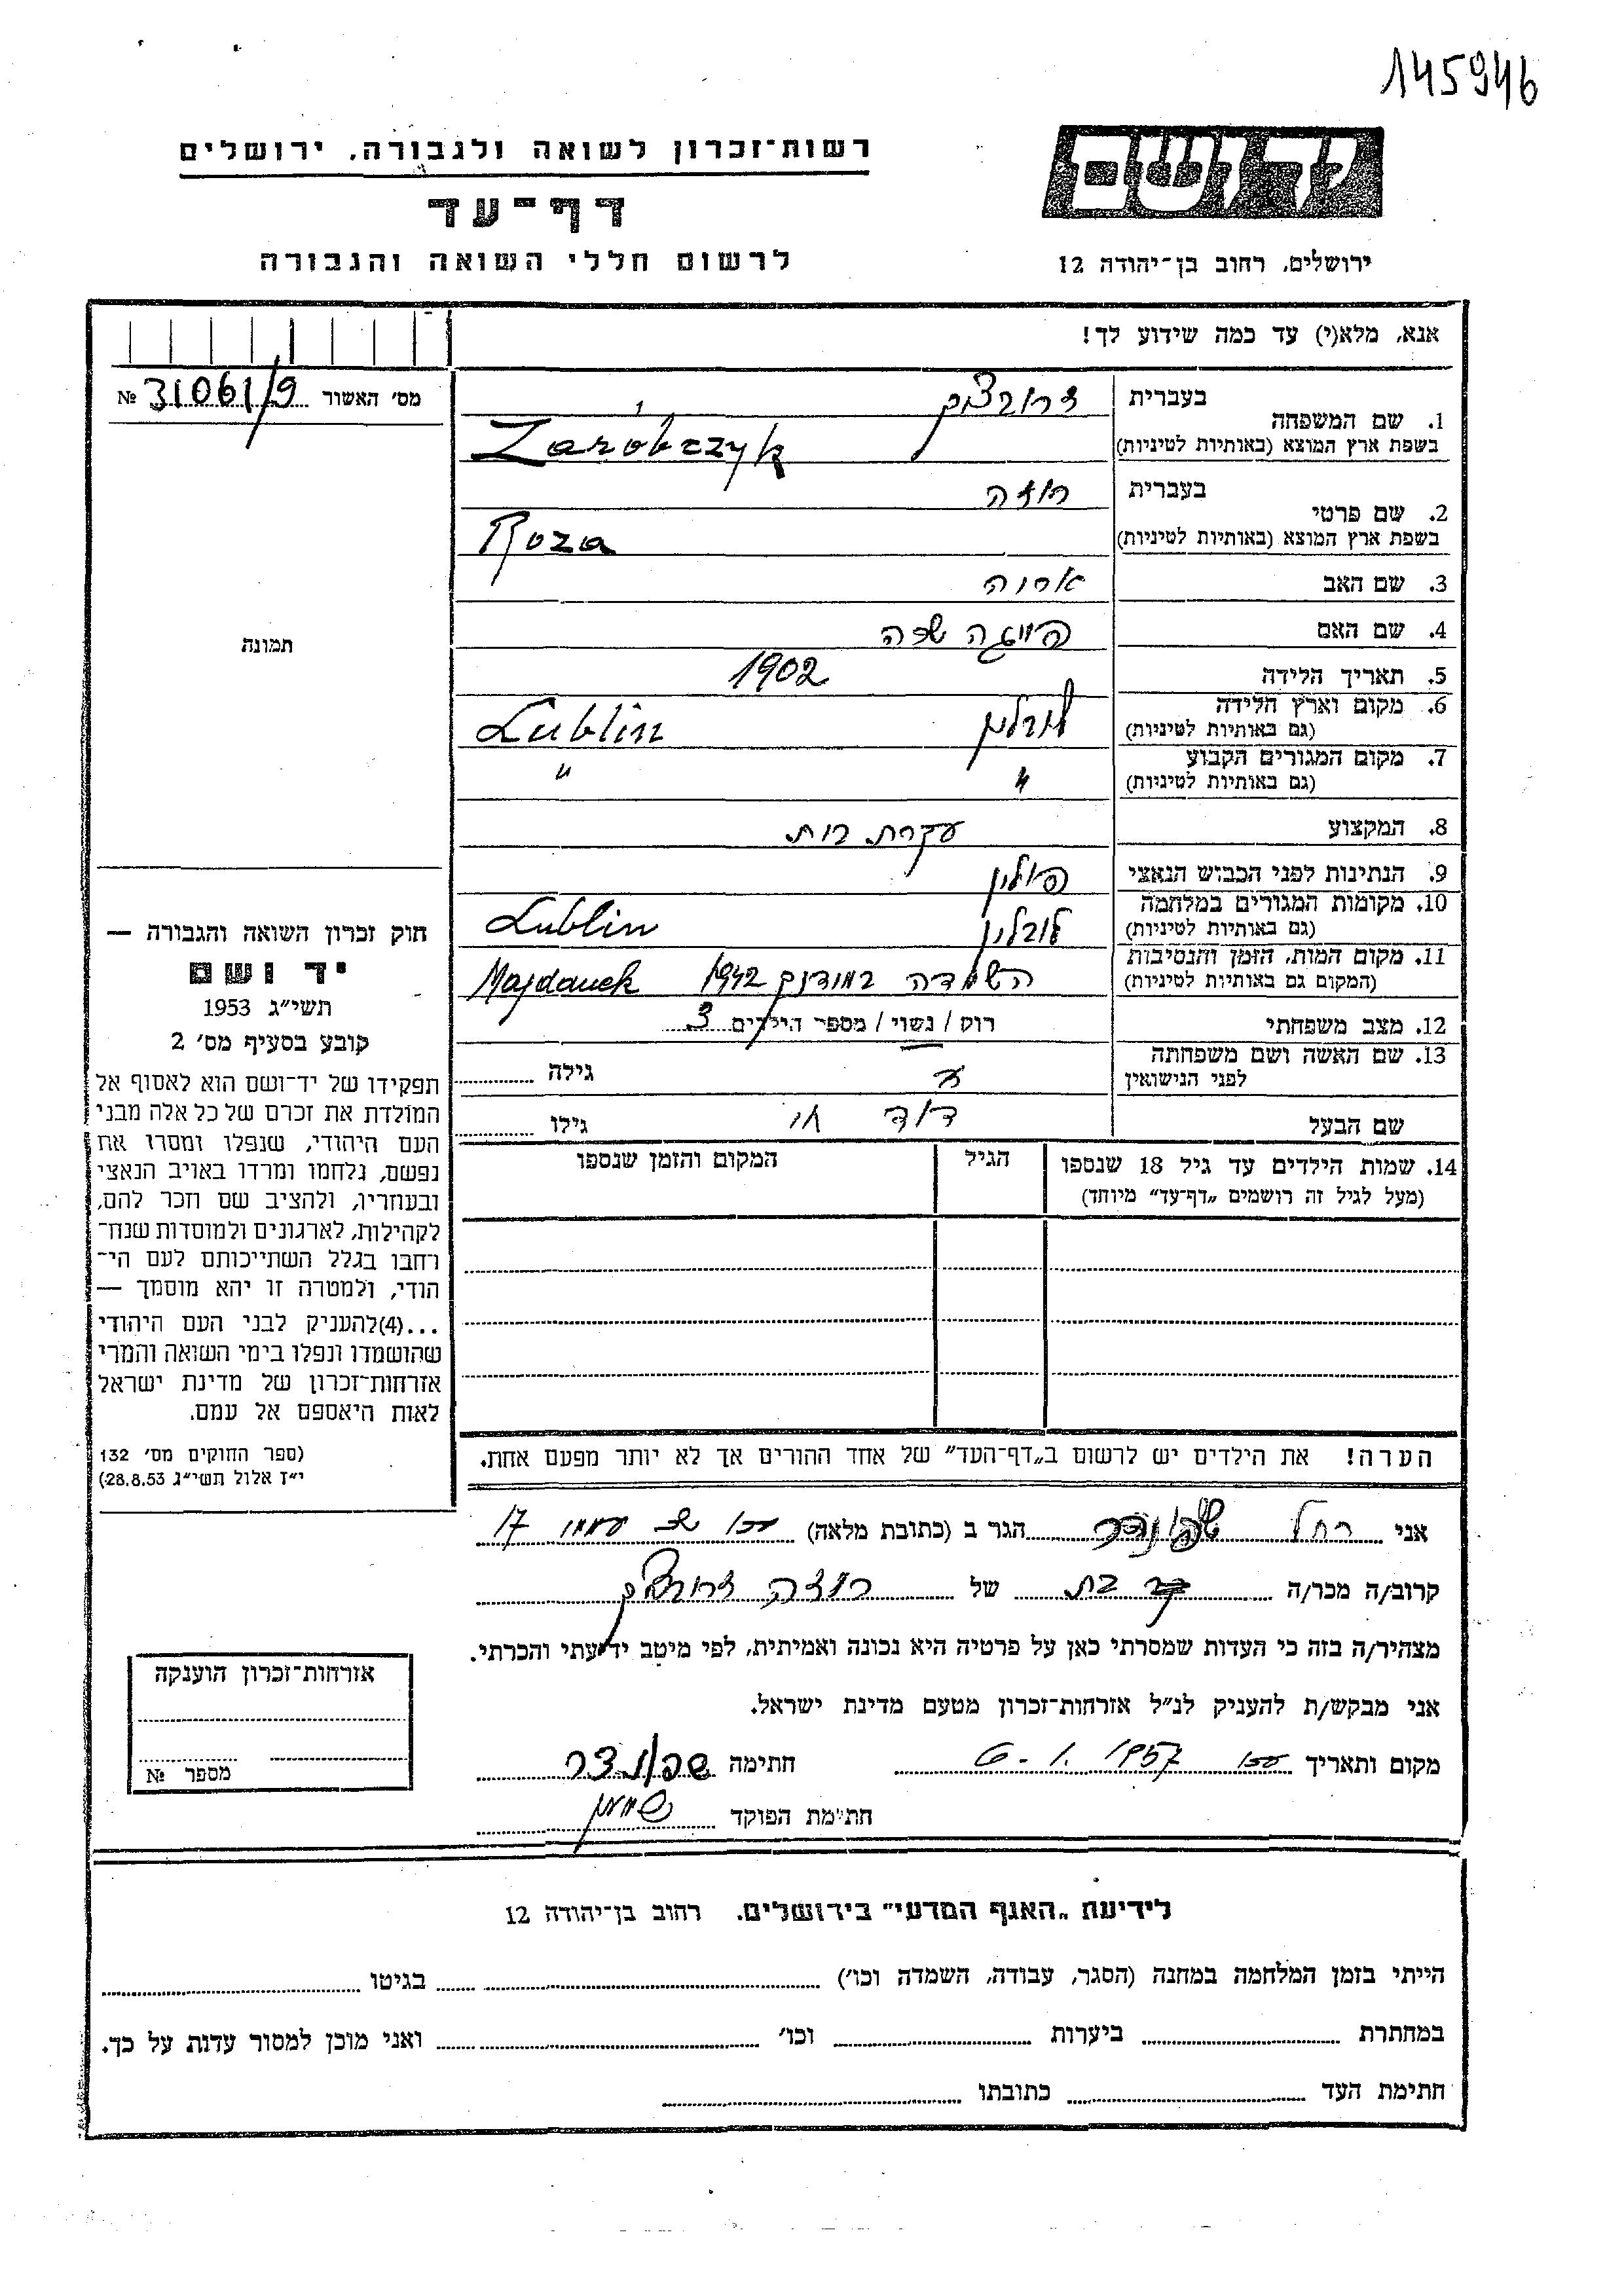 145946
רשות־זכרון לשואה ולגבורה, ירושלים
יד ושם
דף־עד
לרשום חללי השואה והגבורה
ירושלים, רחוב בן־יהודה 12
אנא, מלא(י) עד כמה שידוע לך!
מס׳ האשור 31061/9 №
1. שם המשפחה
בעברית
בשפת ארץ המוצא (באותיות לטיניות) Zarobczyk
2. שם פרטי
בעברית רוזה
בשפת ארץ המוצא (באותיות לטיניות) Roza
3. שם האב
4. שם האם
5. תאריך הלידה 1902
6. מקום וארץ הלידה
(גם באותיות לטיניות) לובלין Lublin
7. מקום המגורים הקבוע
(גם באותיות לטיניות) " "
8. המקצוע עקרת בית
9. הנתינות לפני הכבוש הנאצי פולין
10. מקומות המגורים במלחמה
(גם באותיות לטיניות) לובלין Lublin
11. מקום המות, הזמן והנסיבות
(המקום גם באותיות לטיניות) השמדה 1942 Majdanek
12. מצב משפחתי רוק / נשוי / מספר הילדים 3
13. שם האשה ושם משפחתה
לפני הנישואין
גילה
שם הבעל דוד
גילו
14. שמות הילדים עד גיל 18 שנספו
(מעל לגיל זה רושמים „דף־עד” מיוחד)
הגיל
המקום והזמן שנספו
הערה! את הילדים יש לרשום ב„דף־העד” של אחד ההורים אך לא יותר מפעם אחת.
תמונה
חוק זכרון השואה והגבורה —
יד ושם
תשי״ג 1953
קובע בסעיף מס׳ 2
תפקידו של יד־ושם הוא לאסוף אל
המולדת את זכרם של כל אלה מבני
העם היהודי, שנפלו ומסרו את
נפשם, נלחמו ומרדו באויב הנאצי
ובעוזריו, ולהציב שם וזכר להם,
לקהילות, לארגונים ולמוסדות שנח־
רחבו בגלל השתייכותם לעם הי־
הודי, ולמטרה זו יהא מוסמך —
...(4)להעניק לבני העם היהודי
שהושמדו ונפלו בימי השואה והמרי
אזרחות־זכרון של מדינת ישראל
לאות היאספם אל עמם.
(ספר החוקים מס׳ 132
י״ז אלול תשי״ג 28.8.53)
אני רחל הגר ב (כתובת מלאה) 17
קרוב/ה מכר/ה בת של רוזה
מצהיר/ה בזה כי העדות שמסרתי כאן על פרטיה היא נכונה ואמיתית, לפי מיטב ידיעתי והכרתי.
אני מבקש/ת להעניק לנ״ל אזרחות־זכרון מטעם מדינת ישראל.
מקום ותאריך 6.1.1957 חתימה
חתימת הפוקד
אזרחות־זכרון הוענקה
מספר №
לידיעת „האגף המדעי” בירושלים. רחוב בן־יהודה 12
הייתי בזמן המלחמה במחנה (הסגר, עבודה, השמדה וכו׳) בגיטו
במחתרת ביערות וכו׳ ואני מוכן למסור עדות על כך.
חתימת העד כתובתו